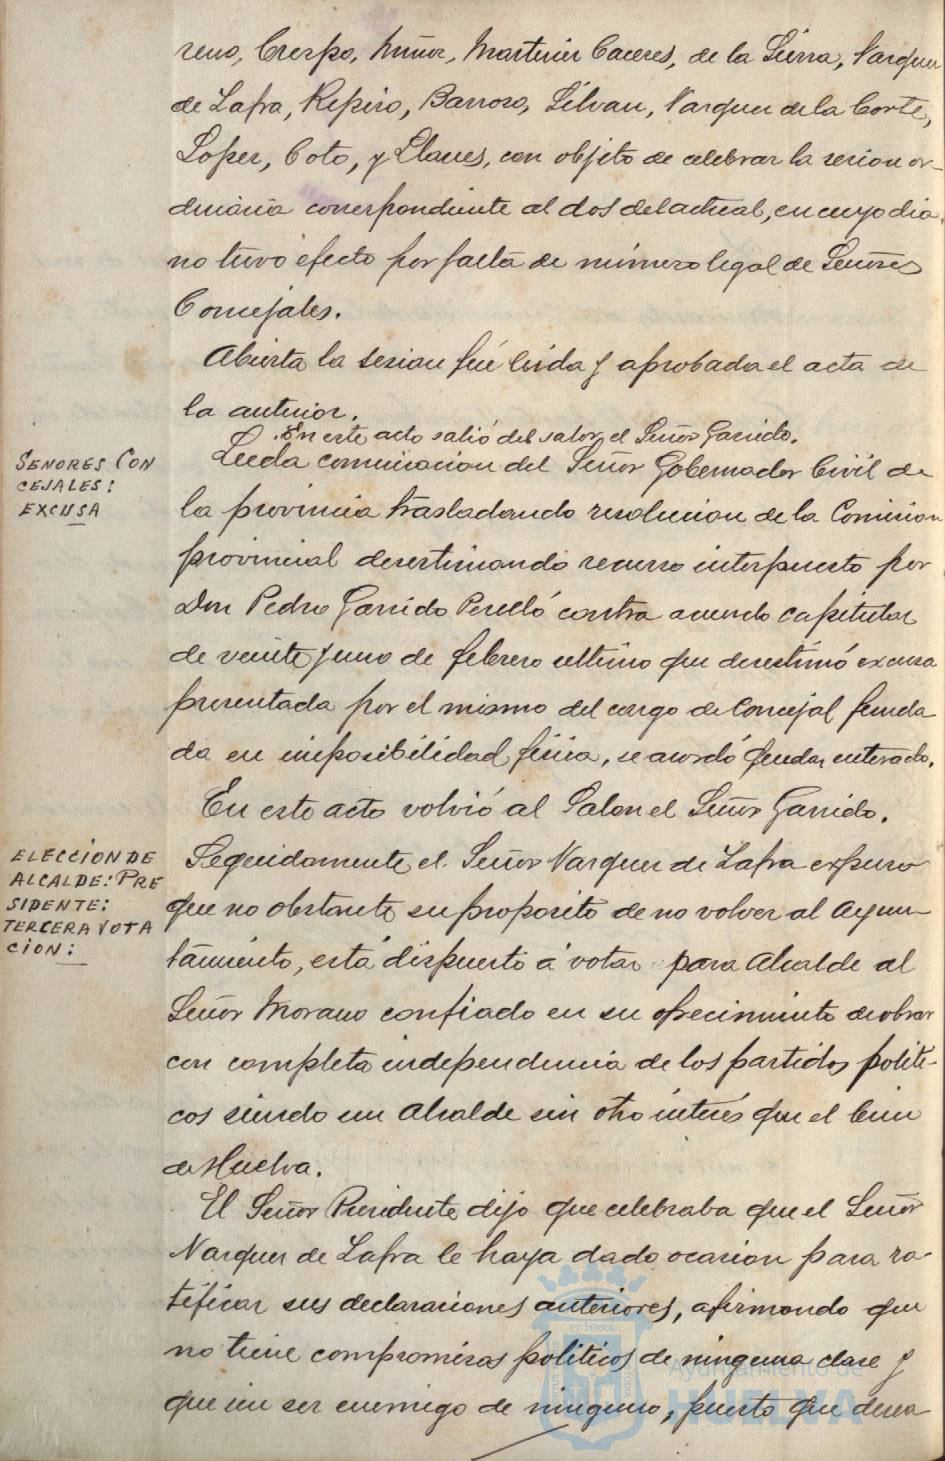 reno, Crespo, Muñoz, Martinez Caceres, de la Sierra, Vazquez
de Zafra, Repiso, Barroso, Silvan, Vazquez de la Corte,
Lopez, Coto, y Llanes, con objeto de celebrar la sesion or-
dinaria correspondiente al dos del actual, en cuyo dia
no tuvo efecto por falta de número legal de Señores
Concejales.
Abierta la sesion fué leida y aprobada el acta de
la anterior.
En este acto salió del salon el Señor Garrido.
SENORES CON
CEJALES:
EXCUSA
Leida comunicacion del Señor Gobernador Civil de
la provincia trasladando resolucion de la Comision
provincial desestimando recurso interpuesto por
Don Pedro Garrido Perelló contra acuerdo capitular
de veinte y uno de febrero ultimo que desestimó excusa
presentada por el mismo del cargo de Concejal funda
da en imposibilidad fisica, se acordó quedar enterado.
En este acto volvió al Salon el Señor Garrido.
ELECCION DE
ALCALDE: PRE
SIDENTE:
TERCERA VOTA
CION:
Seguidamente el Señor Vazquez de Zafra expuso
que no obstante su proposito de no volver al Ayun-
tamiento, está dispuesto á votar para Alcalde al
Señor Morano confiado en su ofrecimiento de obrar
con completa independencia de los partidos politi-
cos siendo un Alcalde sin otro interés que el bien
de Huelva.
El Señor Presidente dijo que celebraba que el Señor
Vazquez de Zafra le haya dado ocasion para ra-
tificar sus declaraciones anteriores, afirmando que
no tiene compromisos politicos de ninguna clase y
que sin ser enemigo de ninguno, puesto que desea
Ayuntamiento de
HUELVA